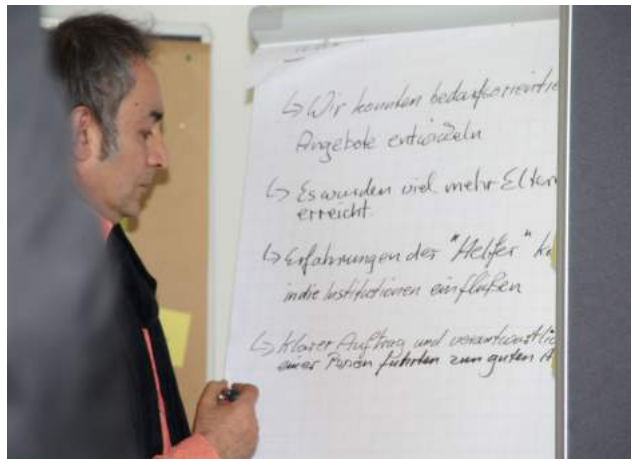 ↳ Wir konnten bedarfsorientie
Angebote entwickeln
↳ Es wurden viel mehr Eltern
erreicht
↳ Erfahrungen der "Helfer" k
in die Institutionen einflußen
↳ Klarer Auftrag und verantwortlic
einer Person führten zum guten A